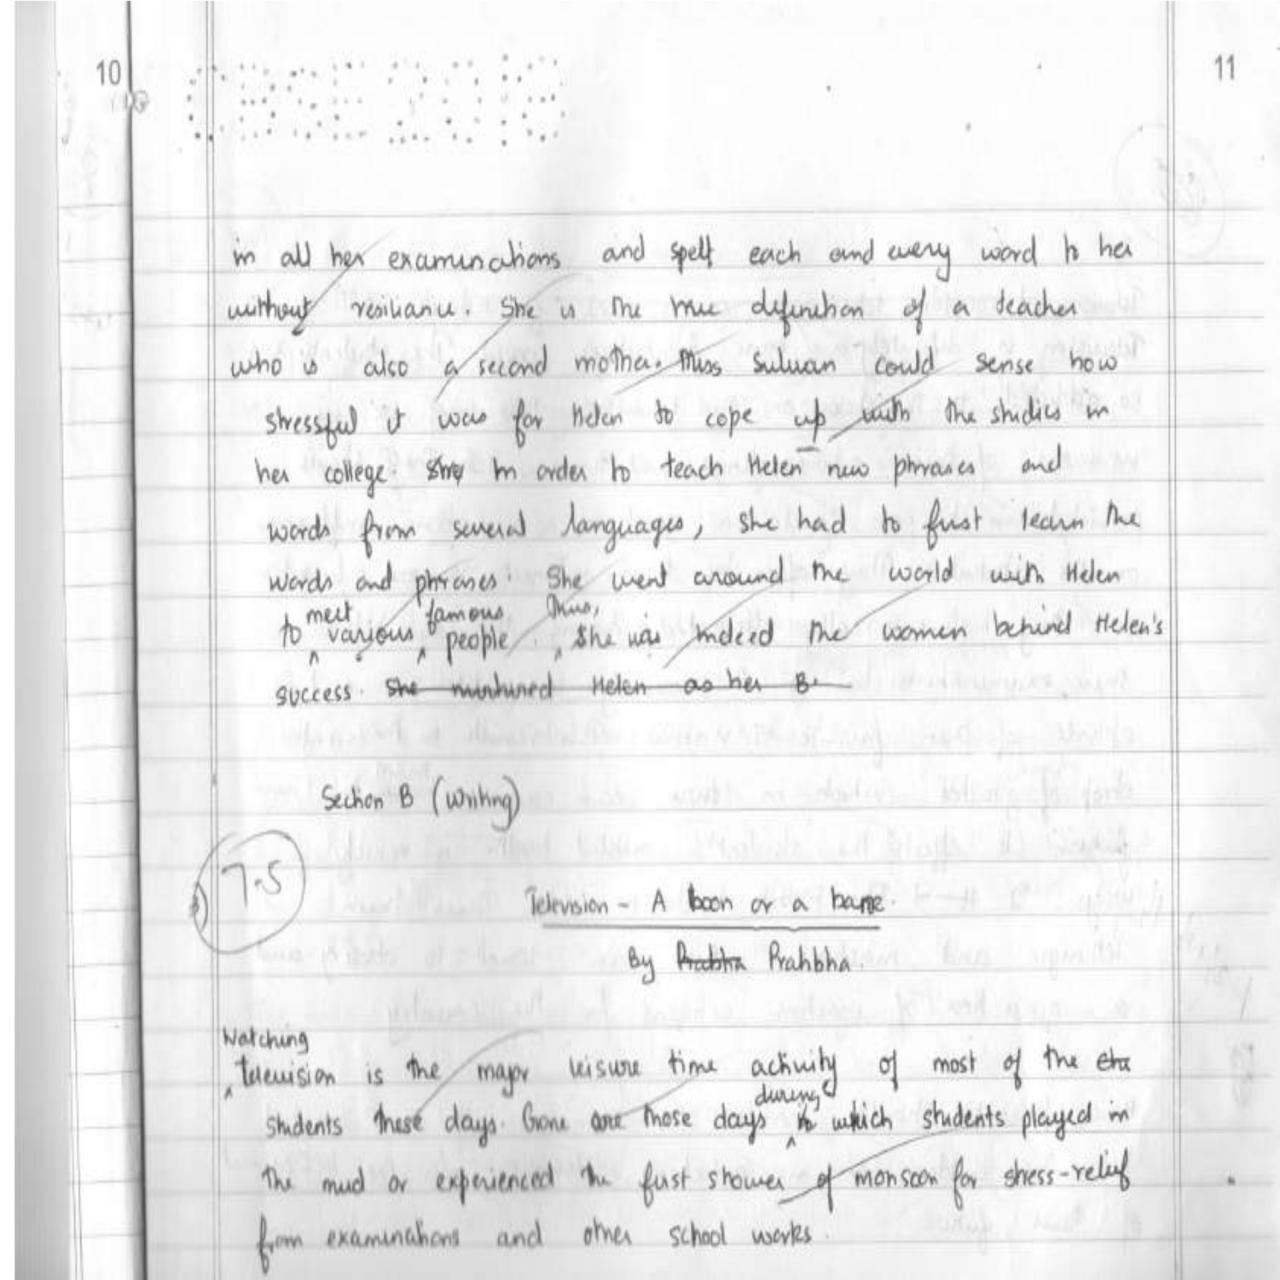 10
11
CBSE 2018
in all her examinations and spelt each and every word to her
without resiliance. She is the true definition of a teacher
who is also a second mother. Miss Sulivan could sense how
stressful it was for Helen to cope up with the studies in
her college. In order to teach Helen new phrases and
words from several languages, she had to first learn the
words and phrases. She went around the world with Helen
to meet various famous people. Thus, she was indeed the women behind Helen's
success. She nurtured Helen as her B.
Section B (Writing)
7.5
3)
Television - A boon or a bane.
By Prabha Prahbha.
Watching television is the major leisure time activity of most of the
students these days. Gone are those days during which students played in
the mud or experienced the first shower of monsoon for stress-relief
from examinations and other school works.